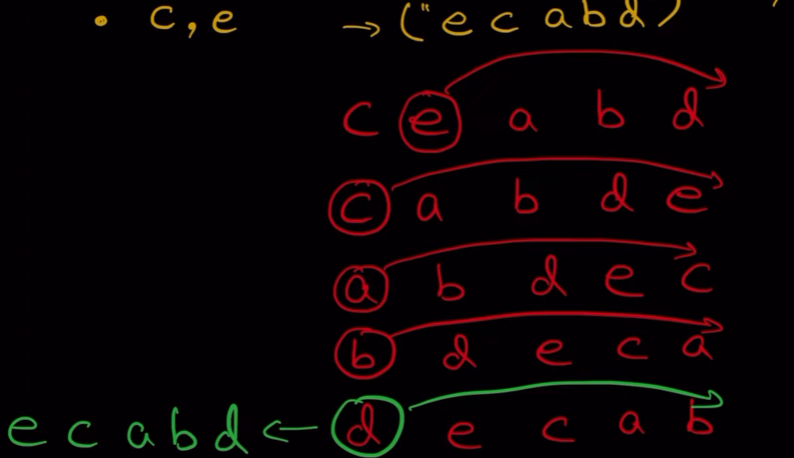 • c, e → ("e c a b d)
c e a b d
c a b d e
a b d e c
b d e c a
e c a b d ← d e c a b